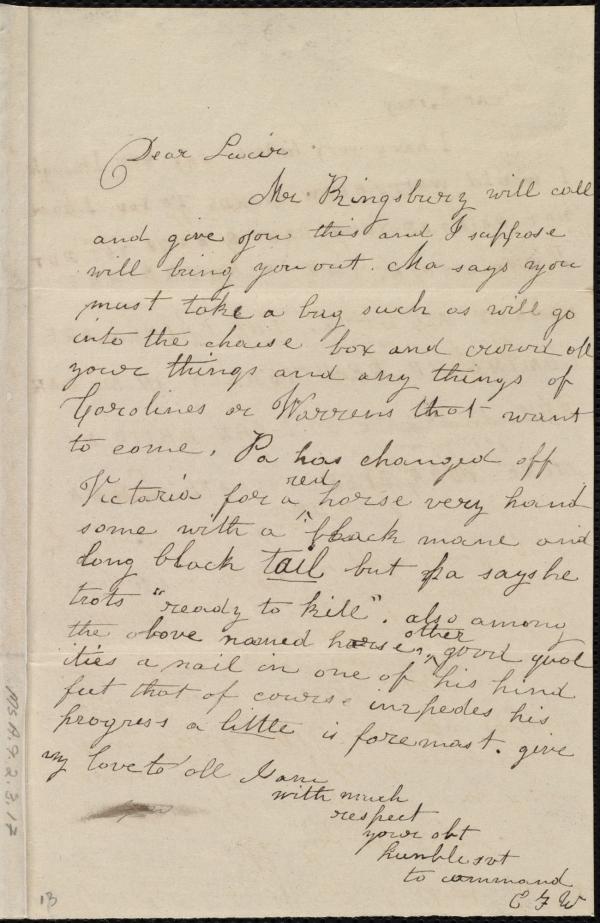 Dear Lucia
Mr Kingsbury will call
and give you this and I suppose
will bring you out. Ma says you
must take a bag such as will go
into the chaise box and crowd all
your things and any things of
Carolines or Warrens that want
to come. Pa has changed off
Victoria for a red horse very hand
some with a black mane and
long black tail but pa says he
trots "ready to kill". also among
the above named horse's other good qual
ities a nail in one of his hind
feet that of course impedes his
progress a little is foremast. give
my love to all I am
with much
respect
your obt
humble svt
to command
E F W
Ms A.9.2.3.17
13